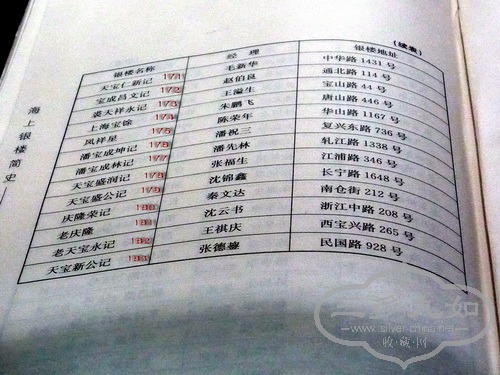 (续表)
银楼名称 经理 银楼地址
天宝仁新记 171 毛新华 中华路 1431 号
宝成昌文记 172 赵伯良 通北路 114 号
裘天祥永记 173 王溢生 宝山路 44 号
上海宝馀 174 朱鹏飞 唐山路 446 号
凤祥星 175 陈荣年 华山路 1167 号
潘宝成坤记 176 潘祝三 复兴东路 736 号
潘宝成林记 177 潘先林 轧江路 1338 号
天宝盛润记 178 张福生 江浦路 346 号
天宝盛公记 179 沈锦鑫 长宁路 1648 号
庆隆荣记 180 秦文达 南仓街 212 号
老庆隆 181 沈云书 浙江中路 208 号
老天宝永记 182 王祺庆 西宝兴路 265 号
天宝新公记 183 张德鋆 民国路 928 号
海上银楼简史
www.silver-china.net
收·藏·网